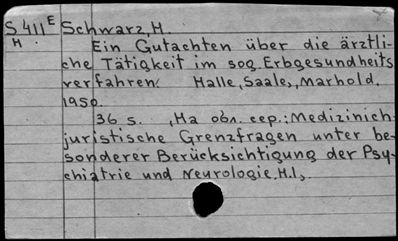 S 411 E Schwarz, H.
H.
Ein Gutachten über die ärztli-
che Tätigkeit im sog. Erbgesundheits
verfahren. Halle, Saale, Marhold.
1950.
36 s. , На обл. сер.: Medizinich-
juristische Grenzfragen unter be-
sonderer Berücksichtigung der Psy-
chiatrie und Neurologie, H.1,.